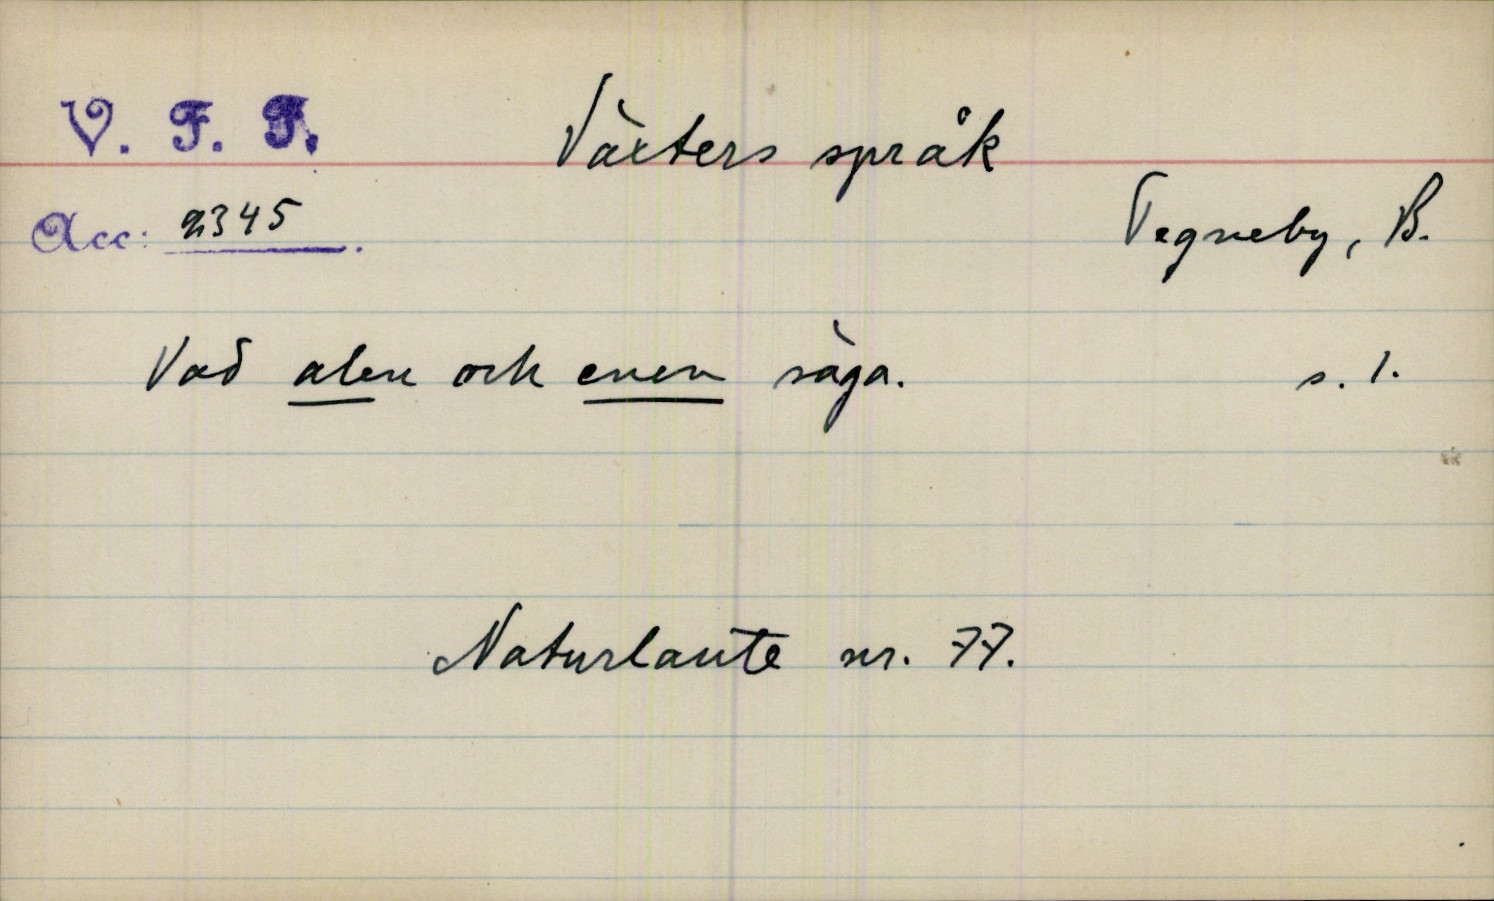 V. F. F. Växters språk
Acc: 2345 Tegneby, B.
Vad alen och enen säga. s. 1.
Naturlaute nr. 77.